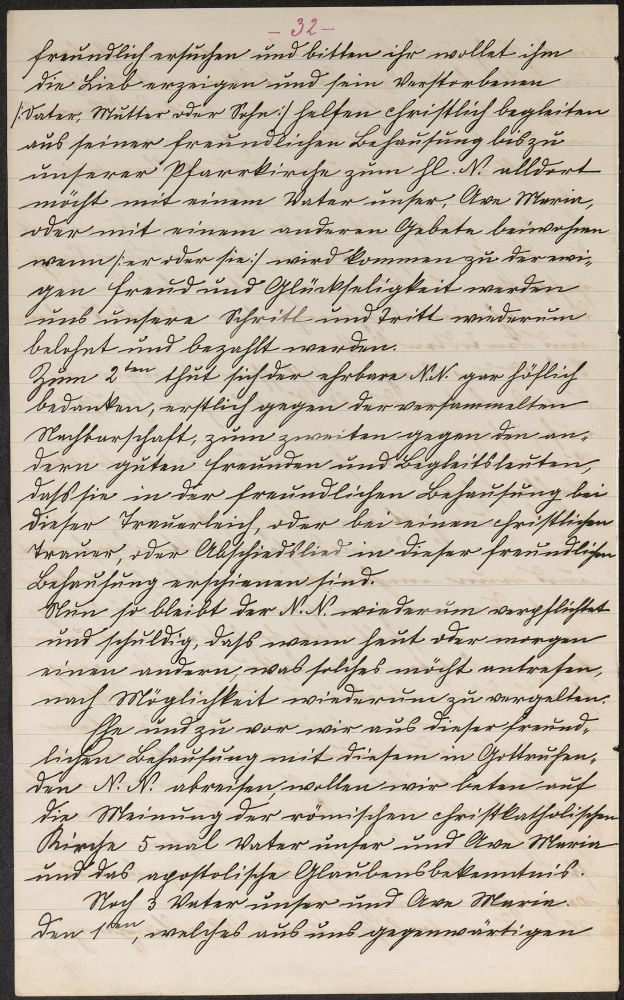 - 32 -
freundlich ersuchen und bitten ihr wollet ihm
die Lieb erzeigen und sein Verstorbenen
/:Vater, Mutter oder Sohn:/ helfen christlich begleiten
aus seiner freundlichen Behausung bis zu
unserer Pfarrkirche zum hl. N. alldort
möcht mit einem Vater unser, Ave Maria,
oder mit einem anderen Gebete beiwohnen
wenn /:er oder sie:/ wird kommen zu der ewi-
gen Freud und Glückseligkeit werden
uns unsere Schritt und Tritt wiederum
belohnt und bezahlt werden.
Zum 2ten thut sich der ehrbare N.N. gar höflich
bedanken, erstlich gegen der versammelten
Nachbarschaft, zum zweiten gegen den an-
dern guten Freunden und Begleitsleuten,
dass sie in der freundlichen Behausung bei
dieser Trauerleich, oder bei einen christlichen
Trauer, oder Abschiedslied in dieser freundlichen
Behausung erschienen sind.
Nun so bleibt der N.N. wiederum verpflichtet
und schuldig, dass wenn heut oder morgen
einen andern, was solches möcht antrefen,
nach Möglichkeit wiederum zu vergelten.
Ehe und zu vor wir aus dieser freund-
lichen Behausung mit diesem in Gottruhen-
den N.N. abreisen, wollen wir beten auf
die Meinung der römischen christkatholischen
Kirche 5 mal Vater unser und Ave Maria
und das apostolische Glaubensbekenntnis.
Noch 3 Vater unser und Ave Maria.
den 1ten, welches aus uns gegenwärtigen